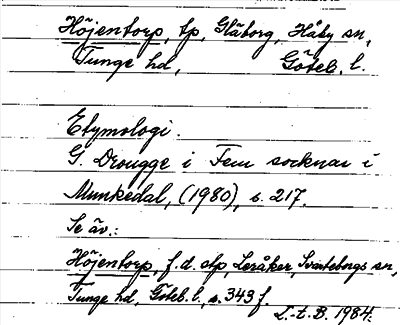 Höjentorp, tp, Glåborg, Håby sn,
Tunge hd, Göteb. l.
Etymologi.
G. Drougge i Fem socknar i
Munkedal, (1980), s. 217.
Se äv.:
Höjentorp, f.d. slp, Leråker, Svarteborgs sn,
Tunge hd, Göteb. l., s. 343 f.
L.-t. B. 1984.